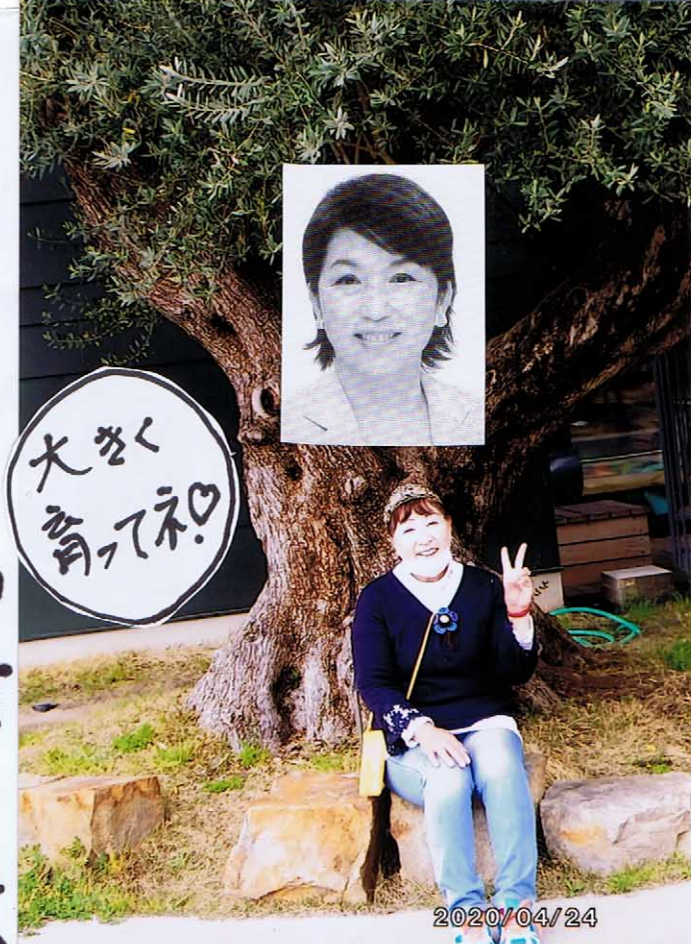 大きく
育ってネ!
2020/04/24